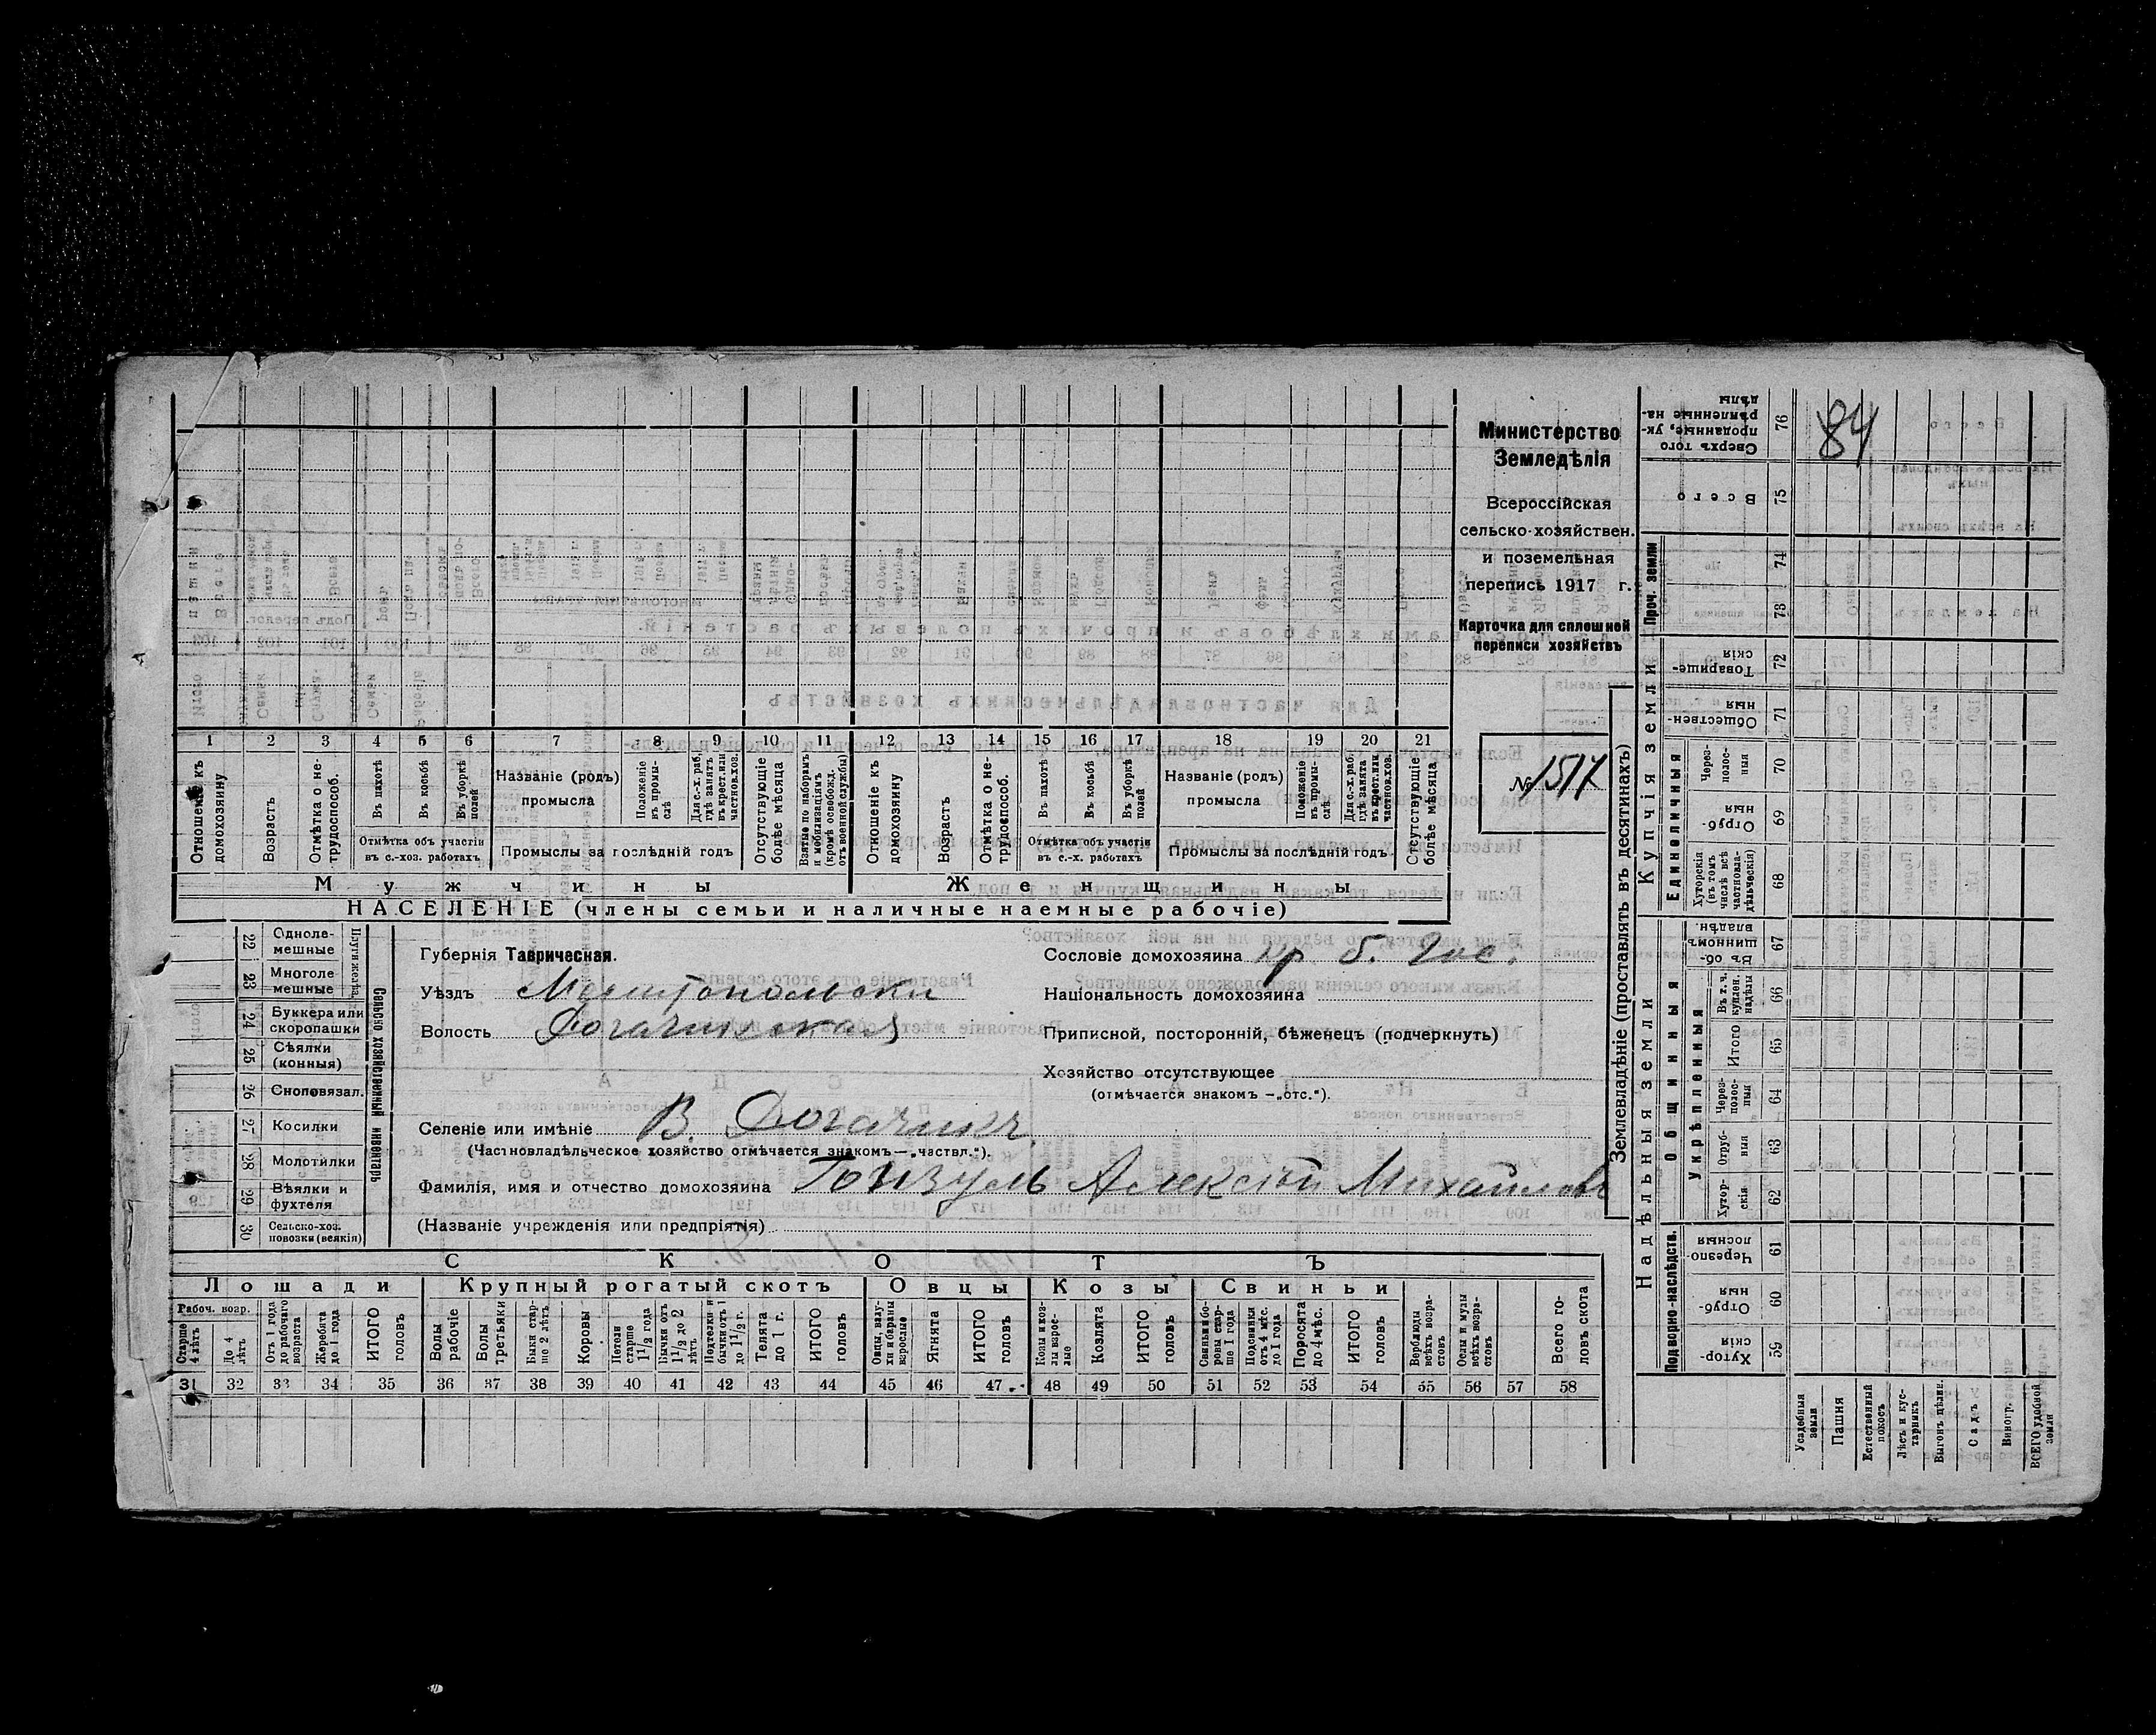 84
Министерство
Земледѣлія
Всероссійская
сельско-хозяйствен.
и поземельная
перепись 1917 г.
Карточка для сплошной
переписи хозяйствъ
№ 1517
1 2 3 4 5 6 7 8 9 10 11 12 13 14 15 16 17 18 19 20 21
Отношеніе къ домохозяину
Возрастъ
Отмѣтка о не-трудоспособ.
Въ пахотѣ
Въ косьбѣ
Въ уборкѣ полей
Отмѣтка объ участіи
въ с.-хоз. работахъ
Названіе (родъ)
промысла
Положеніе въ промы-слѣ
Для с.-х. раб. гдѣ занятъ въ крест. или частнов. хоз.
Промыслы за послѣдній годъ
Отсутствующіе болѣе мѣсяца
Взятые по наборамъ и мобилизаціямъ (кромѣ освобожд. отъ военной службы)
Отношеніе къ домохозяину
Возрастъ
Отмѣтка о не-трудоспособ.
Въ пахотѣ
Въ косьбѣ
Въ уборкѣ полей
Отмѣтка объ участіи
въ с.-х. работахъ
Названіе (родъ)
промысла
Положеніе въ промы-слѣ
Для с.-х. раб. гдѣ занята въ крест. или частнов. хоз.
Промыслы за послѣдній годъ
Отсутствующіе болѣе мѣсяца
Мужчины
Женщины
НАСЕЛЕНІЕ (члены семьи и наличные наемные рабочіе)
22 Одноле-мешные
23 Многоле мешные
Плуги желѣз.
24 Буккера или скоропашки
25 Сѣялки (конныя)
26 Сноповязал.
27 Косилки
28 Молотилки
29 Вѣялки и фухтеля
30 Сельско-хоз. повозки (всякія)
Сельско хозяйственный инвентарь
Губернія Таврическая.
Уѣздъ Мелитопольски
Волость Рогачикская
Сословіе домохозяина кр б. Гос.
Національность домохозяина
Приписной, посторонній, бѣженецъ (подчеркнуть)
Хозяйство отсутствующее
(отмѣчается знакомъ —„отс.“).
Селеніе или имѣніе В. Рогачикъ
(Частновладѣльческое хозяйство отмѣчается знакомъ—„частвл.“).
Фамилія, имя и отчество домохозяина Гонзуль Алексѣй Михайлов
(Названіе учрежденія или предпріятія)
СКОТЪ
Лошади
Крупный рогатый скотъ
Овцы
Козы
Свиньи
Рабоч. возр.
Старше 4 лѣтъ
До 4 лѣтъ
Отъ 1 года до рабочаго возраста
Жеребята до 1 года
ИТОГО головъ
Волы рабочіе
Волы третьяки
Быки стар-ше 2 лѣтъ
Коровы
Нетели старше 1 1/2 года
Бычки отъ 1 1/2 до 2 лѣтъ
Подтелки и бычки отъ 1 до 1 1/2 г.
Телята до 1 г.
ИТОГО головъ
Овцы, валу-хи и бараны взрослые
Ягнята
ИТОГО головъ
Козы и коз-лы взрос-лые
Козлята
ИТОГО головъ
Свиньи и бо-ровы стар-ше 1 года
Подсвинки отъ 4 мѣс. до 1 года
Поросята до 4 мѣс.
ИТОГО головъ
Верблюды всѣхъ возра-стовъ
Ослы и мулы всѣхъ возра-стовъ
Всего го-ловъ скота
31 32 33 34 35 36 37 38 39 40 41 42 43 44 45 46 47 48 49 50 51 52 53 54 55 56 57 58
Землевладѣніе (проставлять въ десятинахъ)
Надѣльныя земли
Купчія земли
Проч. земли
Подворно-наслѣдств.
Общинныя
Укрѣпленныя
Единоличныя
76 Сверхъ того проданные, ук-рѣпленные на-дѣлы
75 Всего
74
73
72 Товарище-скія
71 Обществен-ныя
70 Через-полос-ныя
69 Отруб-ныя
68 Хуторскія (въ томъ числѣ всѣ частновла-дѣльческія)
67 Въ об-щинномъ владѣн.
66 Въ т. ч. куплен. надѣлы
65 Итого
64 Через-полос-ныя
63 Отруб-ныя
62 Хутор-скія
61 Черезпо-лосныя
60 Отруб-ныя
59 Хутор-скія
Усадебныя земли
Пашня
Естественный покосъ
Лѣсъ и кус-тарникъ
Выгонъ цѣлин.
Садъ
Виногр.
ВСЕГО удобной земли